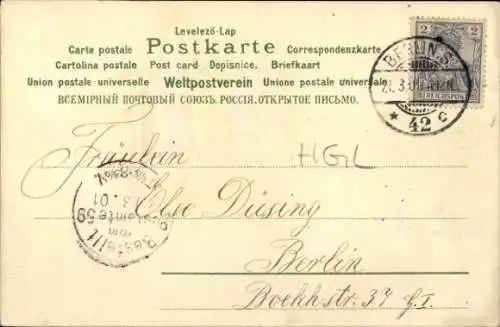 Levelező-Lap
Carte postale Postkarte Correspondenzkarte
Cartolina postale Post card Dopisnice. Briefkaart
Union postale universelle Weltpostverein Unione postale universale
ВСЕМІРНЫЙ ПОЧТОВЫЙ СОЮЗЪ. РОССІЯ. ОТКРЫТОЕ ПИСЬМО.
2 2
REICHSPOST
BERLIN S.
42 c
Fräulein
HGL
Else Düsing
Berlin
Boekhstr. 37 I.
Bestellt
vom
Postamte 59
3.01